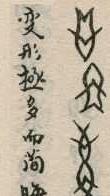 变形極多而简